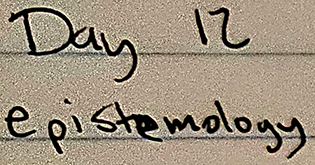 Day 12
epistemology